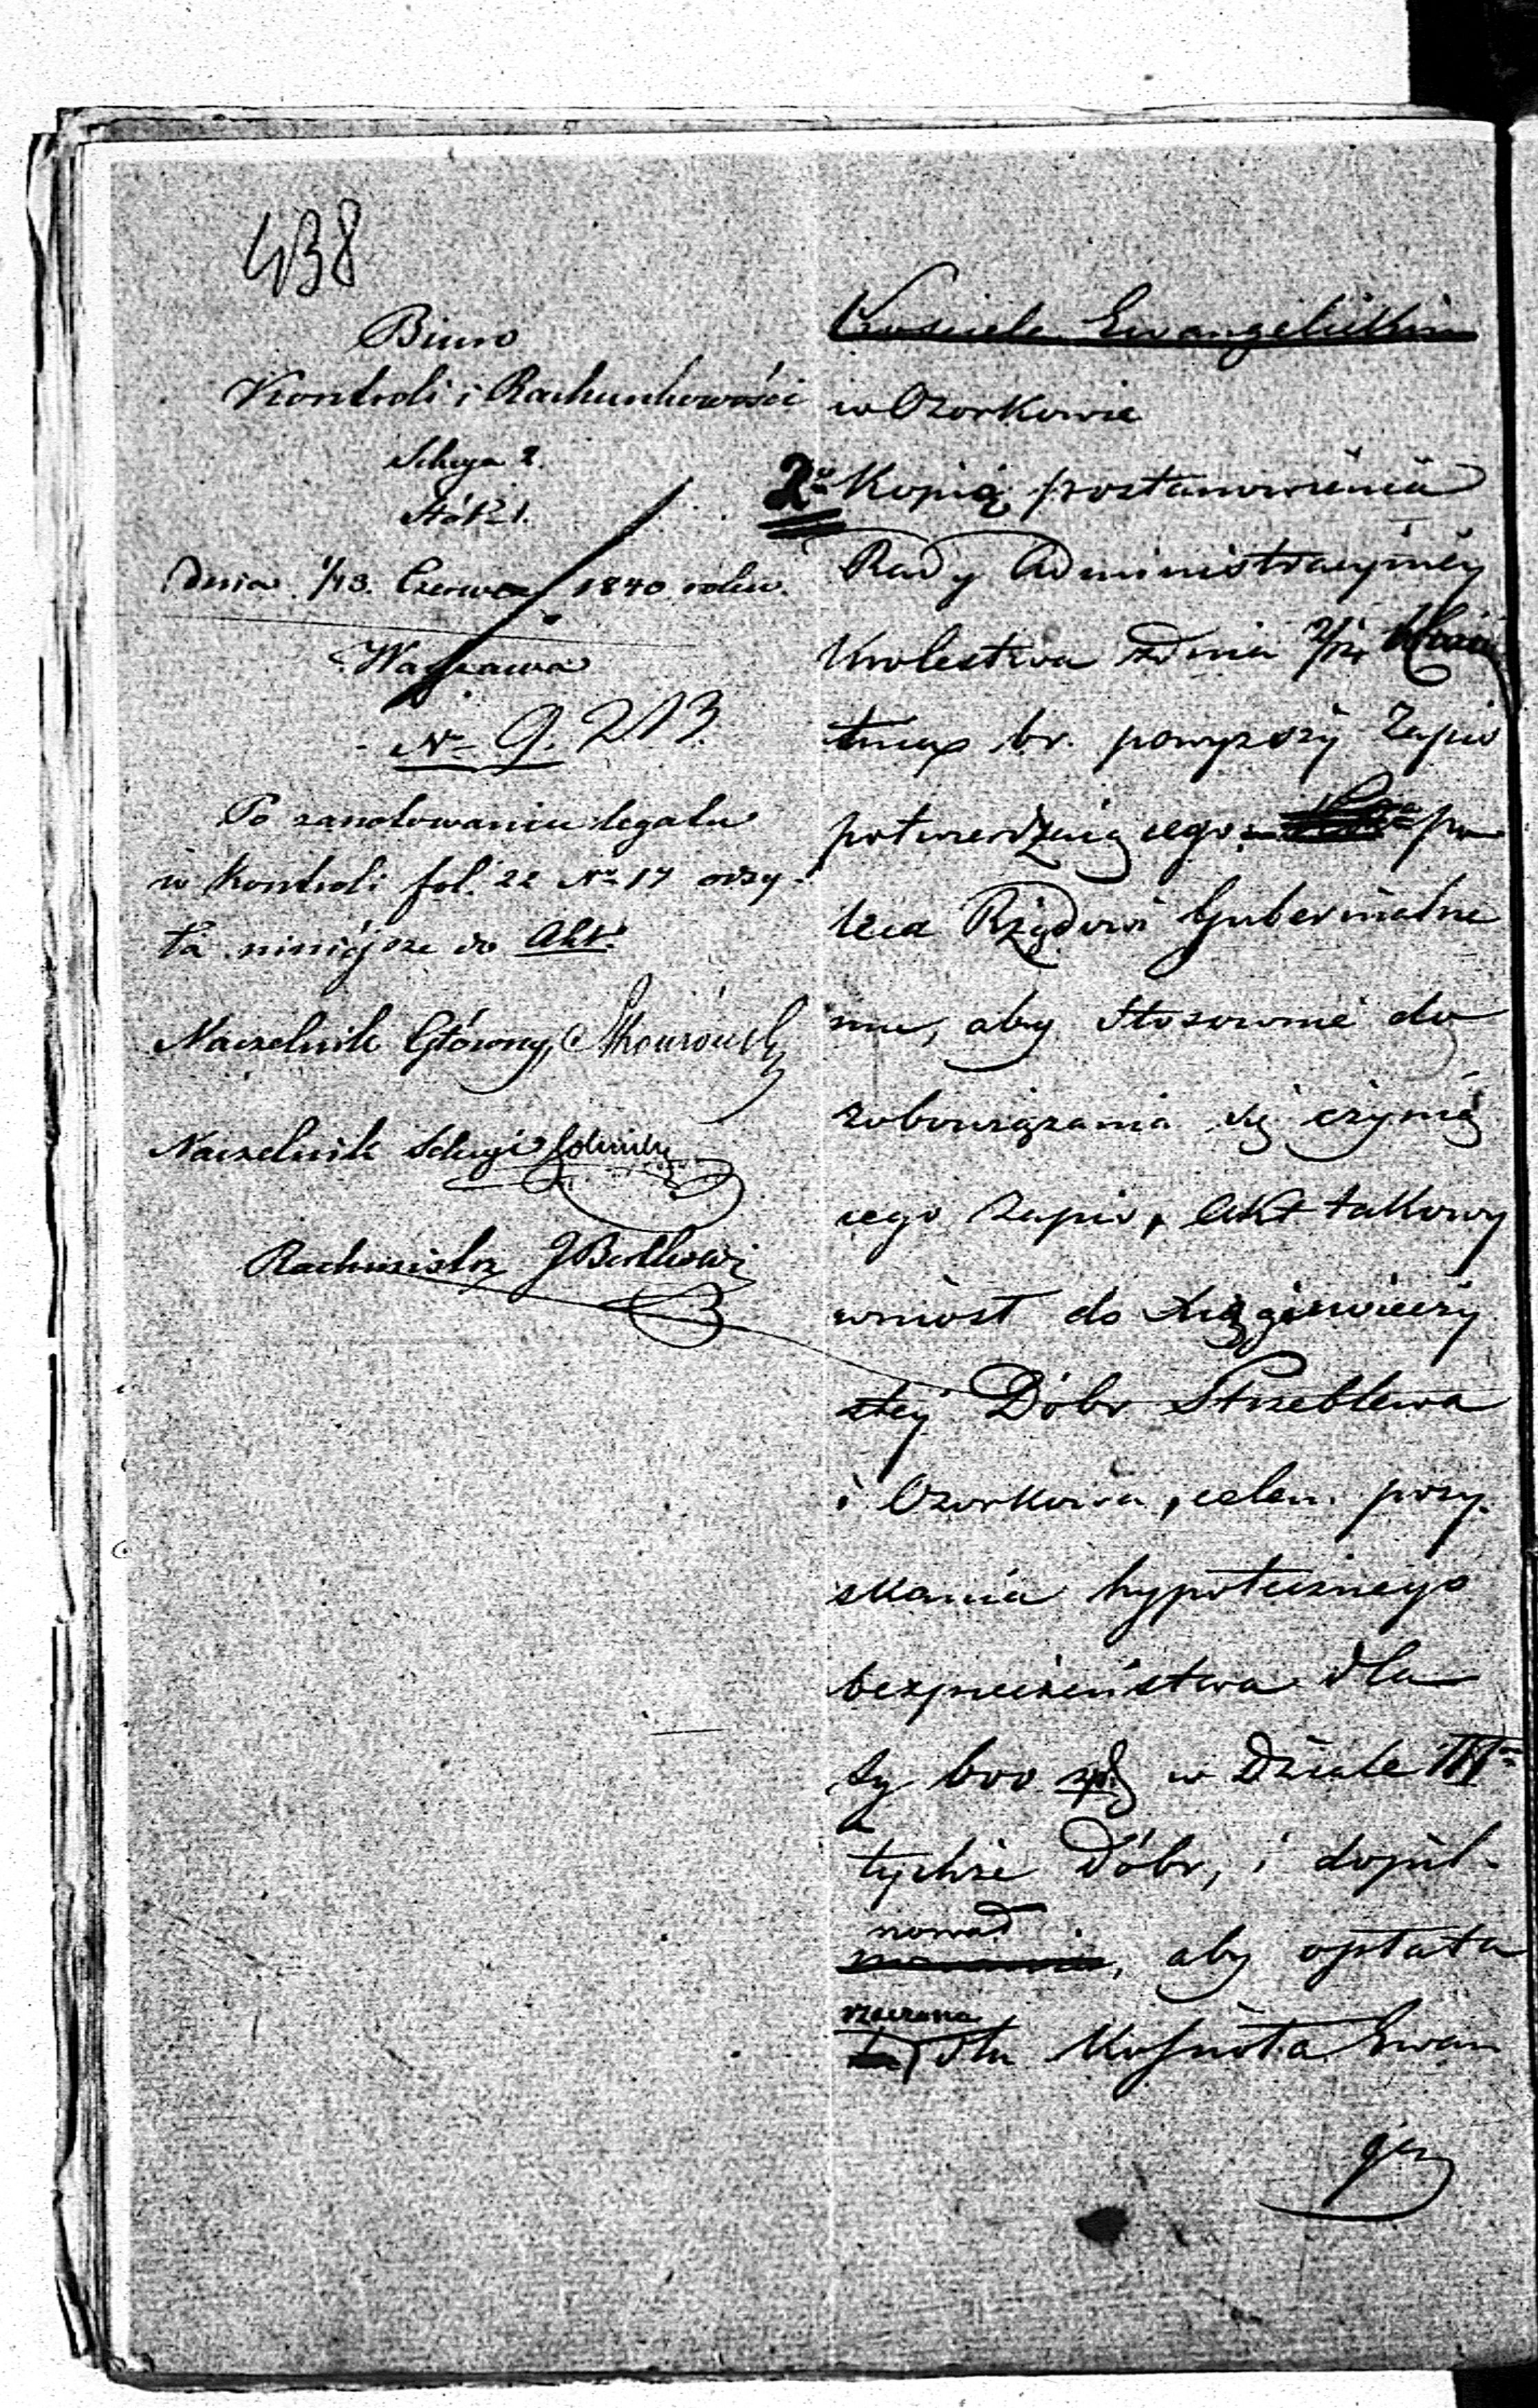 438
Biuro
Kontroli i Rachunkowości
Sekcya 2.
Stół 1.
Dnia 1/13. Czerwca 1840 roku.
Warszawa
No 9.213.
Po zanotowaniu legatu
w Kontroli fol. 22 No 17 odsy-
ła niniejsze do Akt.
Naczelnik Główny
Naczelnik Sekcyi
Rachmistrz
Kościele Ewangelickim
w Ozorkowie
2o Kopią postanowienia
Rady Administracyjnej
Krolestwa z dnia
br. powyższy Zapis
potwierdzającego po
leca Rządowi Gubernialne
mu, aby stosownie do
zobowiązania się czynią
cego zapis, Akt takowy
wniost do Xięgi wieczy
stej Dóbr Strzeblewa
i Ozorkowa, celem pozy-
skania hypotecznego
bezpieczeństwa dla
su 600 złp w Dziale III
tychże Dóbr, i dopil-
nował
, aby opłata
rzeczona
dla Kościoła Ewan
ge